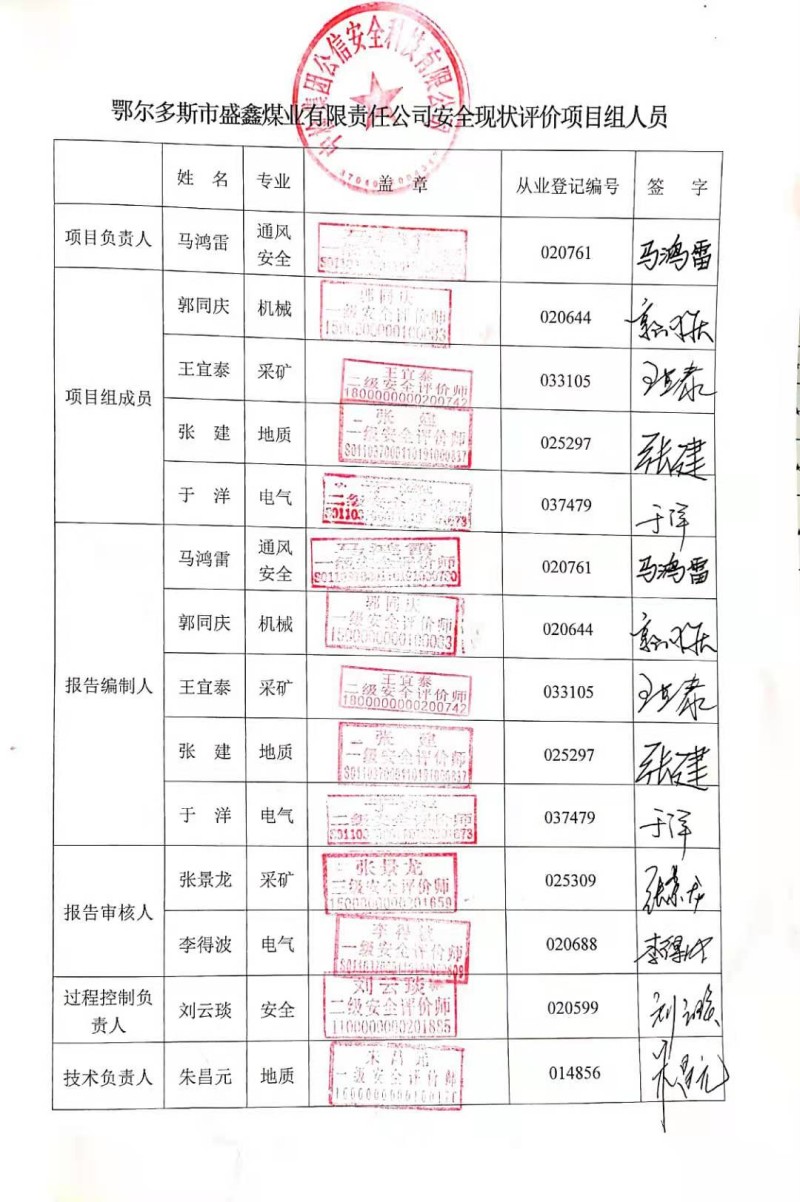 公信安全科技有限公司
鄂尔多斯市盛鑫煤业有限责任公司安全现状评价项目组人员
姓 名 专业 盖 章 从业登记编号 签 字
项目负责人 马鸿雷 通风安全 020761 马鸿雷
项目组成员
郭同庆 机械 郭同庆 一级安全评价师 020644
王宜泰 采矿 王宜泰 二级安全评价师 1800000000200742 033105 王宜泰
张 建 地质 张 建 一级安全评价师 025297 张建
于 洋 电气 037479 于洋
报告编制人
马鸿雷 通风安全 马鸿雷 一级安全评价师 020761 马鸿雷
郭同庆 机械 郭同庆 一级安全评价师 020644
王宜泰 采矿 王宜泰 二级安全评价师 1800000000200742 033105 王宜泰
张 建 地质 张 建 一级安全评价师 025297 张建
于 洋 电气 二级安全评价师 037479 于洋
报告审核人
张景龙 采矿 张景龙 二级安全评价师 1500000000201659 025309 张景龙
李得波 电气 李得波 一级安全评价师 020688 李得波
过程控制负责人 刘云琰 安全 刘云琰 二级安全评价师 1100000000201885 020599 刘云琰
技术负责人 朱昌元 地质 一级安全评价师 014856 朱昌元